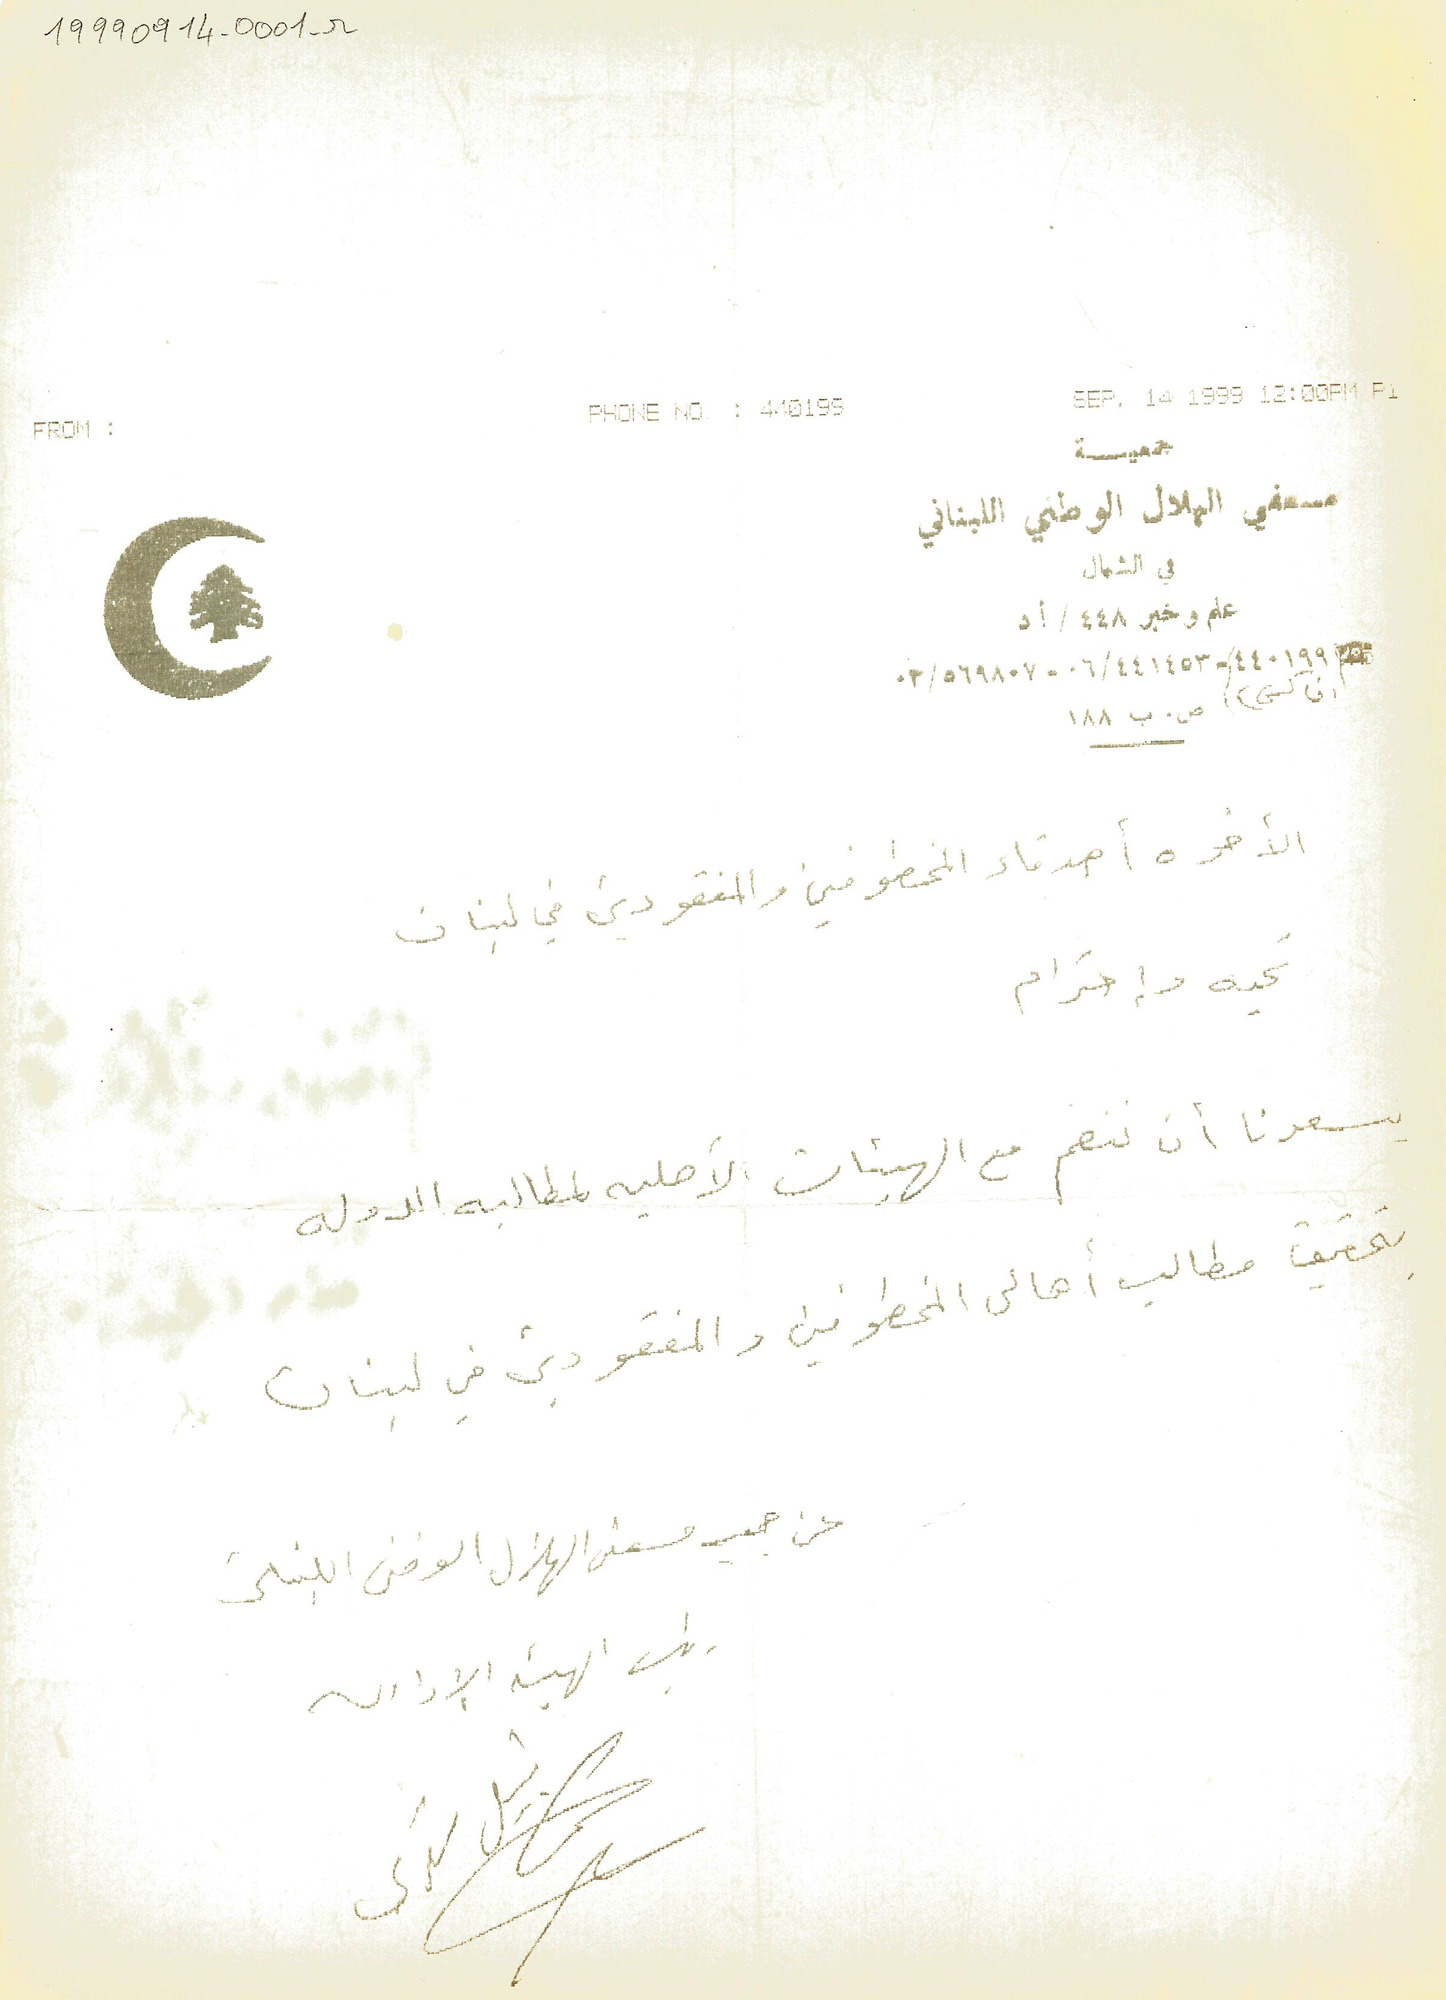 19990914-0001-r
FROM : PHONE NO. : 440199 SEP. 14 1999 12:00PM P1
جمعيــة
مسعفي الهلال الوطني اللبناني
في الشمال
علم و خبر ٤٤٨ / أد
٤٤٠١٩٩ - ٠٦/٤٤١٤٥٣ - ٠٣/٥٦٩٨٠٧
(فاكس) ص. ب ١٨٨
الأخوه أصدقاء المخطوفين والمفقودين في لبنان
تحيه وإحترام
يسعدنا أن ننضم مع الهيئات الأهليه لمطالبه الدوله
بتحقيق مطالب أهالي المخطوفين والمفقودين في لبنان
عن جمعيه مسعفي الهلال الوطني اللبناني
الهيئه الإداريه